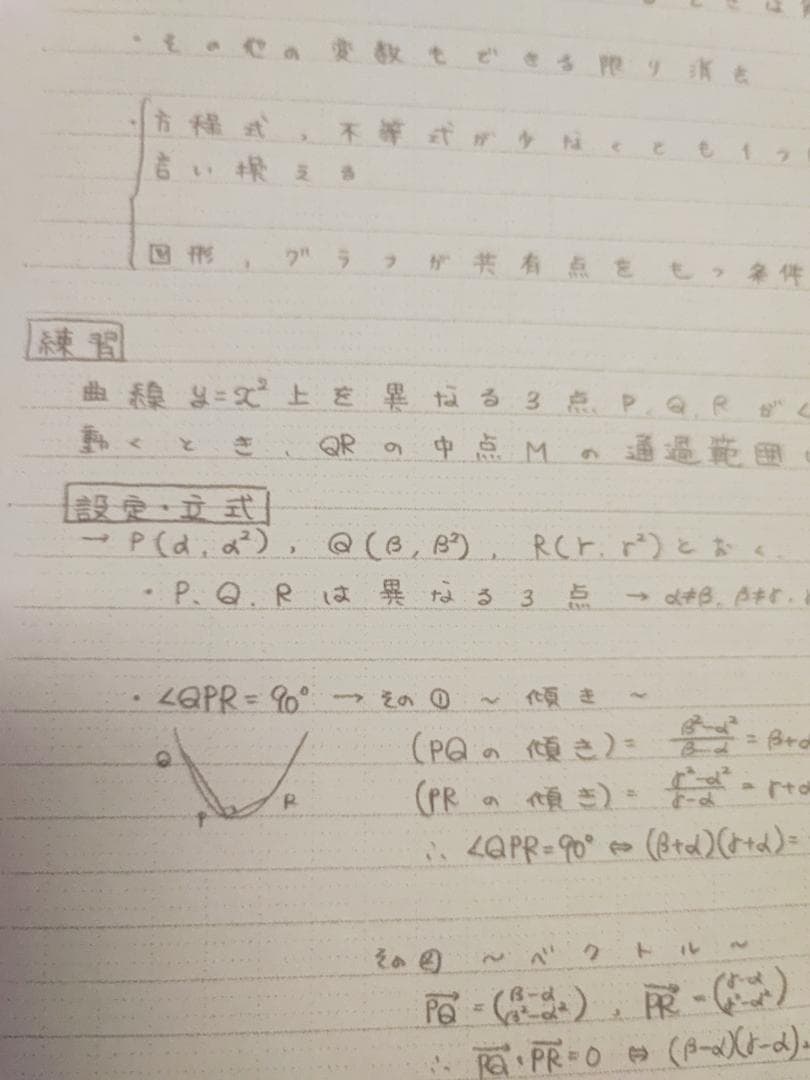 ときは
・その他の変数もできる限り消去
・方程式、不等式が少なくとも1つ
言い換える
図形、グラフが共有点をもつ条件
練習
曲線 y=x² 上を異なる3点 P、Q、R が
動くとき、QRの中点Mの通過範囲
設定・立式
→ P(α, α²), Q(β, β²), R(γ, γ²)とおく、
・P、Q、Rは異なる3点 → α≠β、β≠γ、
・∠QPR=90° → その① ～傾き～
(PQの傾き)= (β²-α²)/(β-α) = β+α
Q
(PRの傾き)= (γ²-α²)/(γ-α) = γ+α
P R
∴ ∠QPR=90° ⇔ (β+α)(γ+α)=
その② ～ベクトル～
PQ→ = (β-α, β²-α²), PR→ = (γ-α, γ²-α²)
∴ PQ→・PR→=0 ⇔ (β-α)(γ-α)+